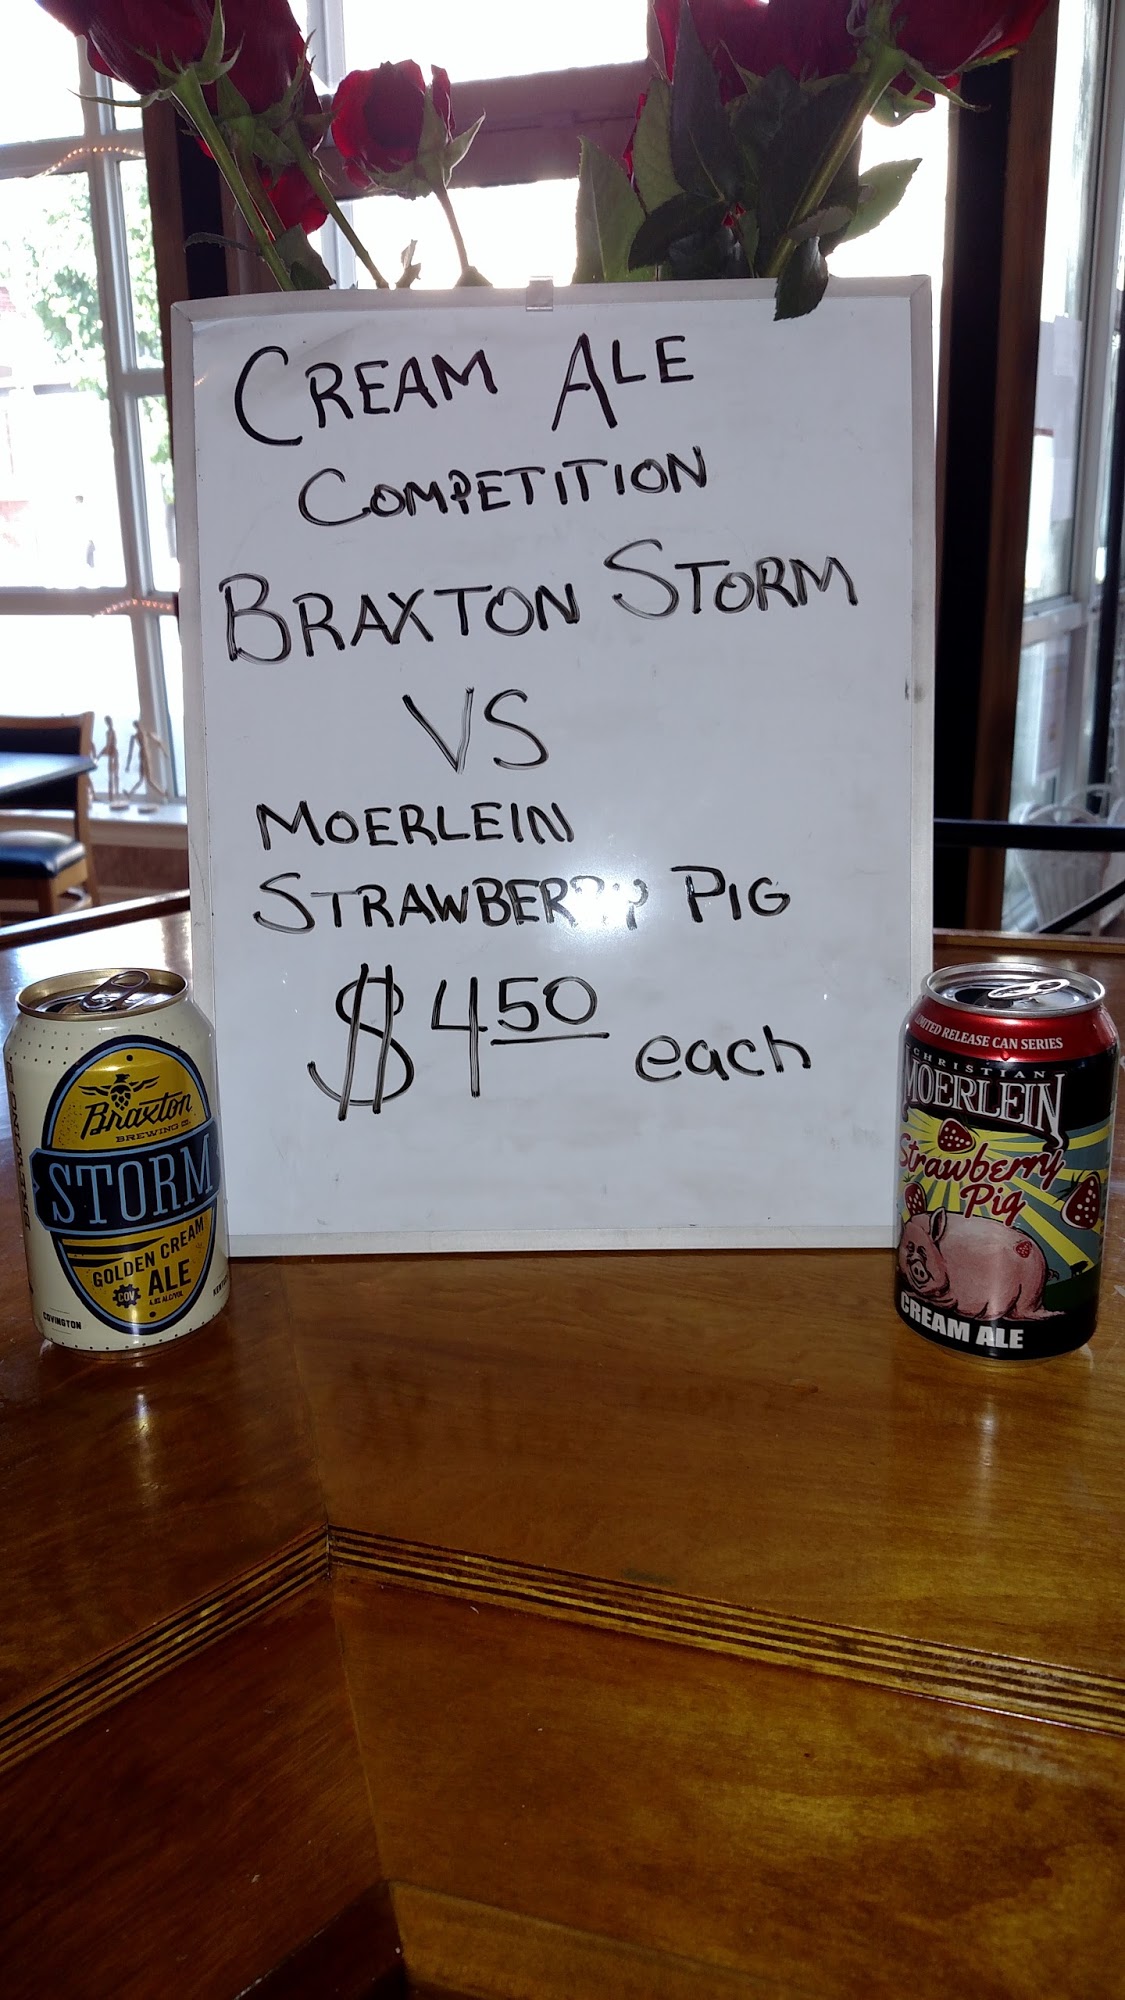 CREAM ALE
COMPETITION
BRAXTON STORM
VS
MOERLEIN
STRAWBERRY PIG
$4 50 each
Braxton
BREWING CO.
STORM
GOLDEN CREAM
ALE
COV
COVINGTON
LIMITED RELEASE CAN SERIES
CHRISTIAN
MOERLEIN
Strawberry
Pig
CREAM ALE